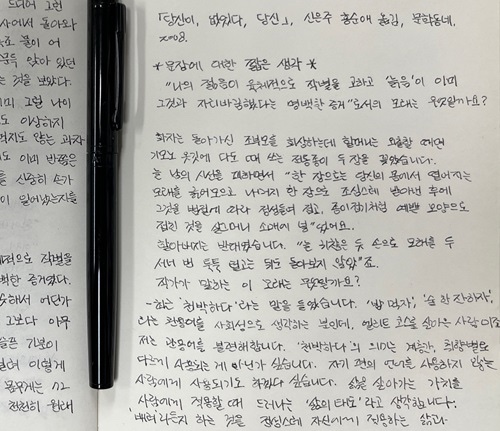 드리던 그런
사에서 돌아와
불이 어
앉아 있던
는 것을 보았다.
그럴 나이
도 이상하지
않는 과자
도 이미 반쯤은
를 신중히 손가
이 일어났는지를
적으로 작별을
백한 증거였다.
해서 어떤가
그보다 아무
슬픈 기분이
이렇게
몸무게는 72
천천히 원래
「당신이, 당신」, 신은주 홍순애 옮김, 문학동네,
2008.
*문장에 대한 짧은 생각*
"나의 젊음이 육체적으로 작별을 고하고 '늙음'이 이미
그것과 자리바꿈했다는 명백한 증거"로서의 모래는 무엇일까요?
화자는 돌아가신 조부모를 회상하는데 할머니는 외출할 때면
기모노 옷깃에 다도 때 쓰는 전통종이 두 장을 꽂았습니다.
늘 남의 시선을 피하면서 "한 장으로는 당신의 몸에서 떨어지는
모래를 긁어모으고 나머지 한 장으로 조심스레 받아낸 후에
그것을 법칙에 따라 정성들여 접고, 종이접기처럼 예쁜 모양으로
접힌 것을 살그머니 소매에 넣"었어요.
할아버지는 반대였습니다. "늘 귀찮은 듯 손으로 모래를 두
서너 번 툭툭 털고는 뒤도 돌아보지 않았"죠.
작가가 말하는 이 모래는 무엇일까요?
'천박하다'라는 말을 들었습니다. '밥 먹자', '술 한 잔하자',
라는 관용어를 사회성으로 생각하는 분인데, 엘리트 코스를 살아온 사람이죠
저는 관용어를 불편해합니다. '천박하다'의 의미는 계층간, 취향별로
다르게 사용되는 게 아닌가 싶습니다. 자기 편의 언어를 사용하지 않는
사람에게 사용되기도 하겠다 싶습니다. 삶을 살아가는 가치를
사람에게 적용할 때 드러나는 '삶의 태도'라고 생각합니다.
하는 것을 정성스레 자신에게 적용하는 삶과